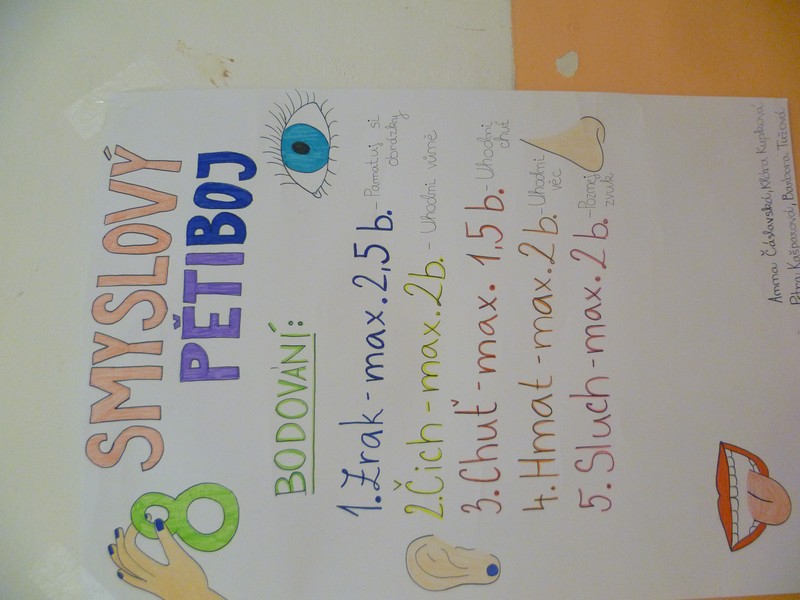 8 SMYSLOVÝ
PĚTIBOJ
BODOVÁNÍ:
1. Zrak - max. 2,5 b. - Pamatuj si obrázky
2. Čich - max. 2b. - Uhodni vůně
3. Chuť - max. 1,5 b. - Uhodni chuť
4. Hmat - max. 2 b. - Uhodni věc
5. Sluch - max. 2 b. - Poznej zvuk
Anna Čáslavská, Klára Kupková
Petra Kašparová, Barbora Tužová